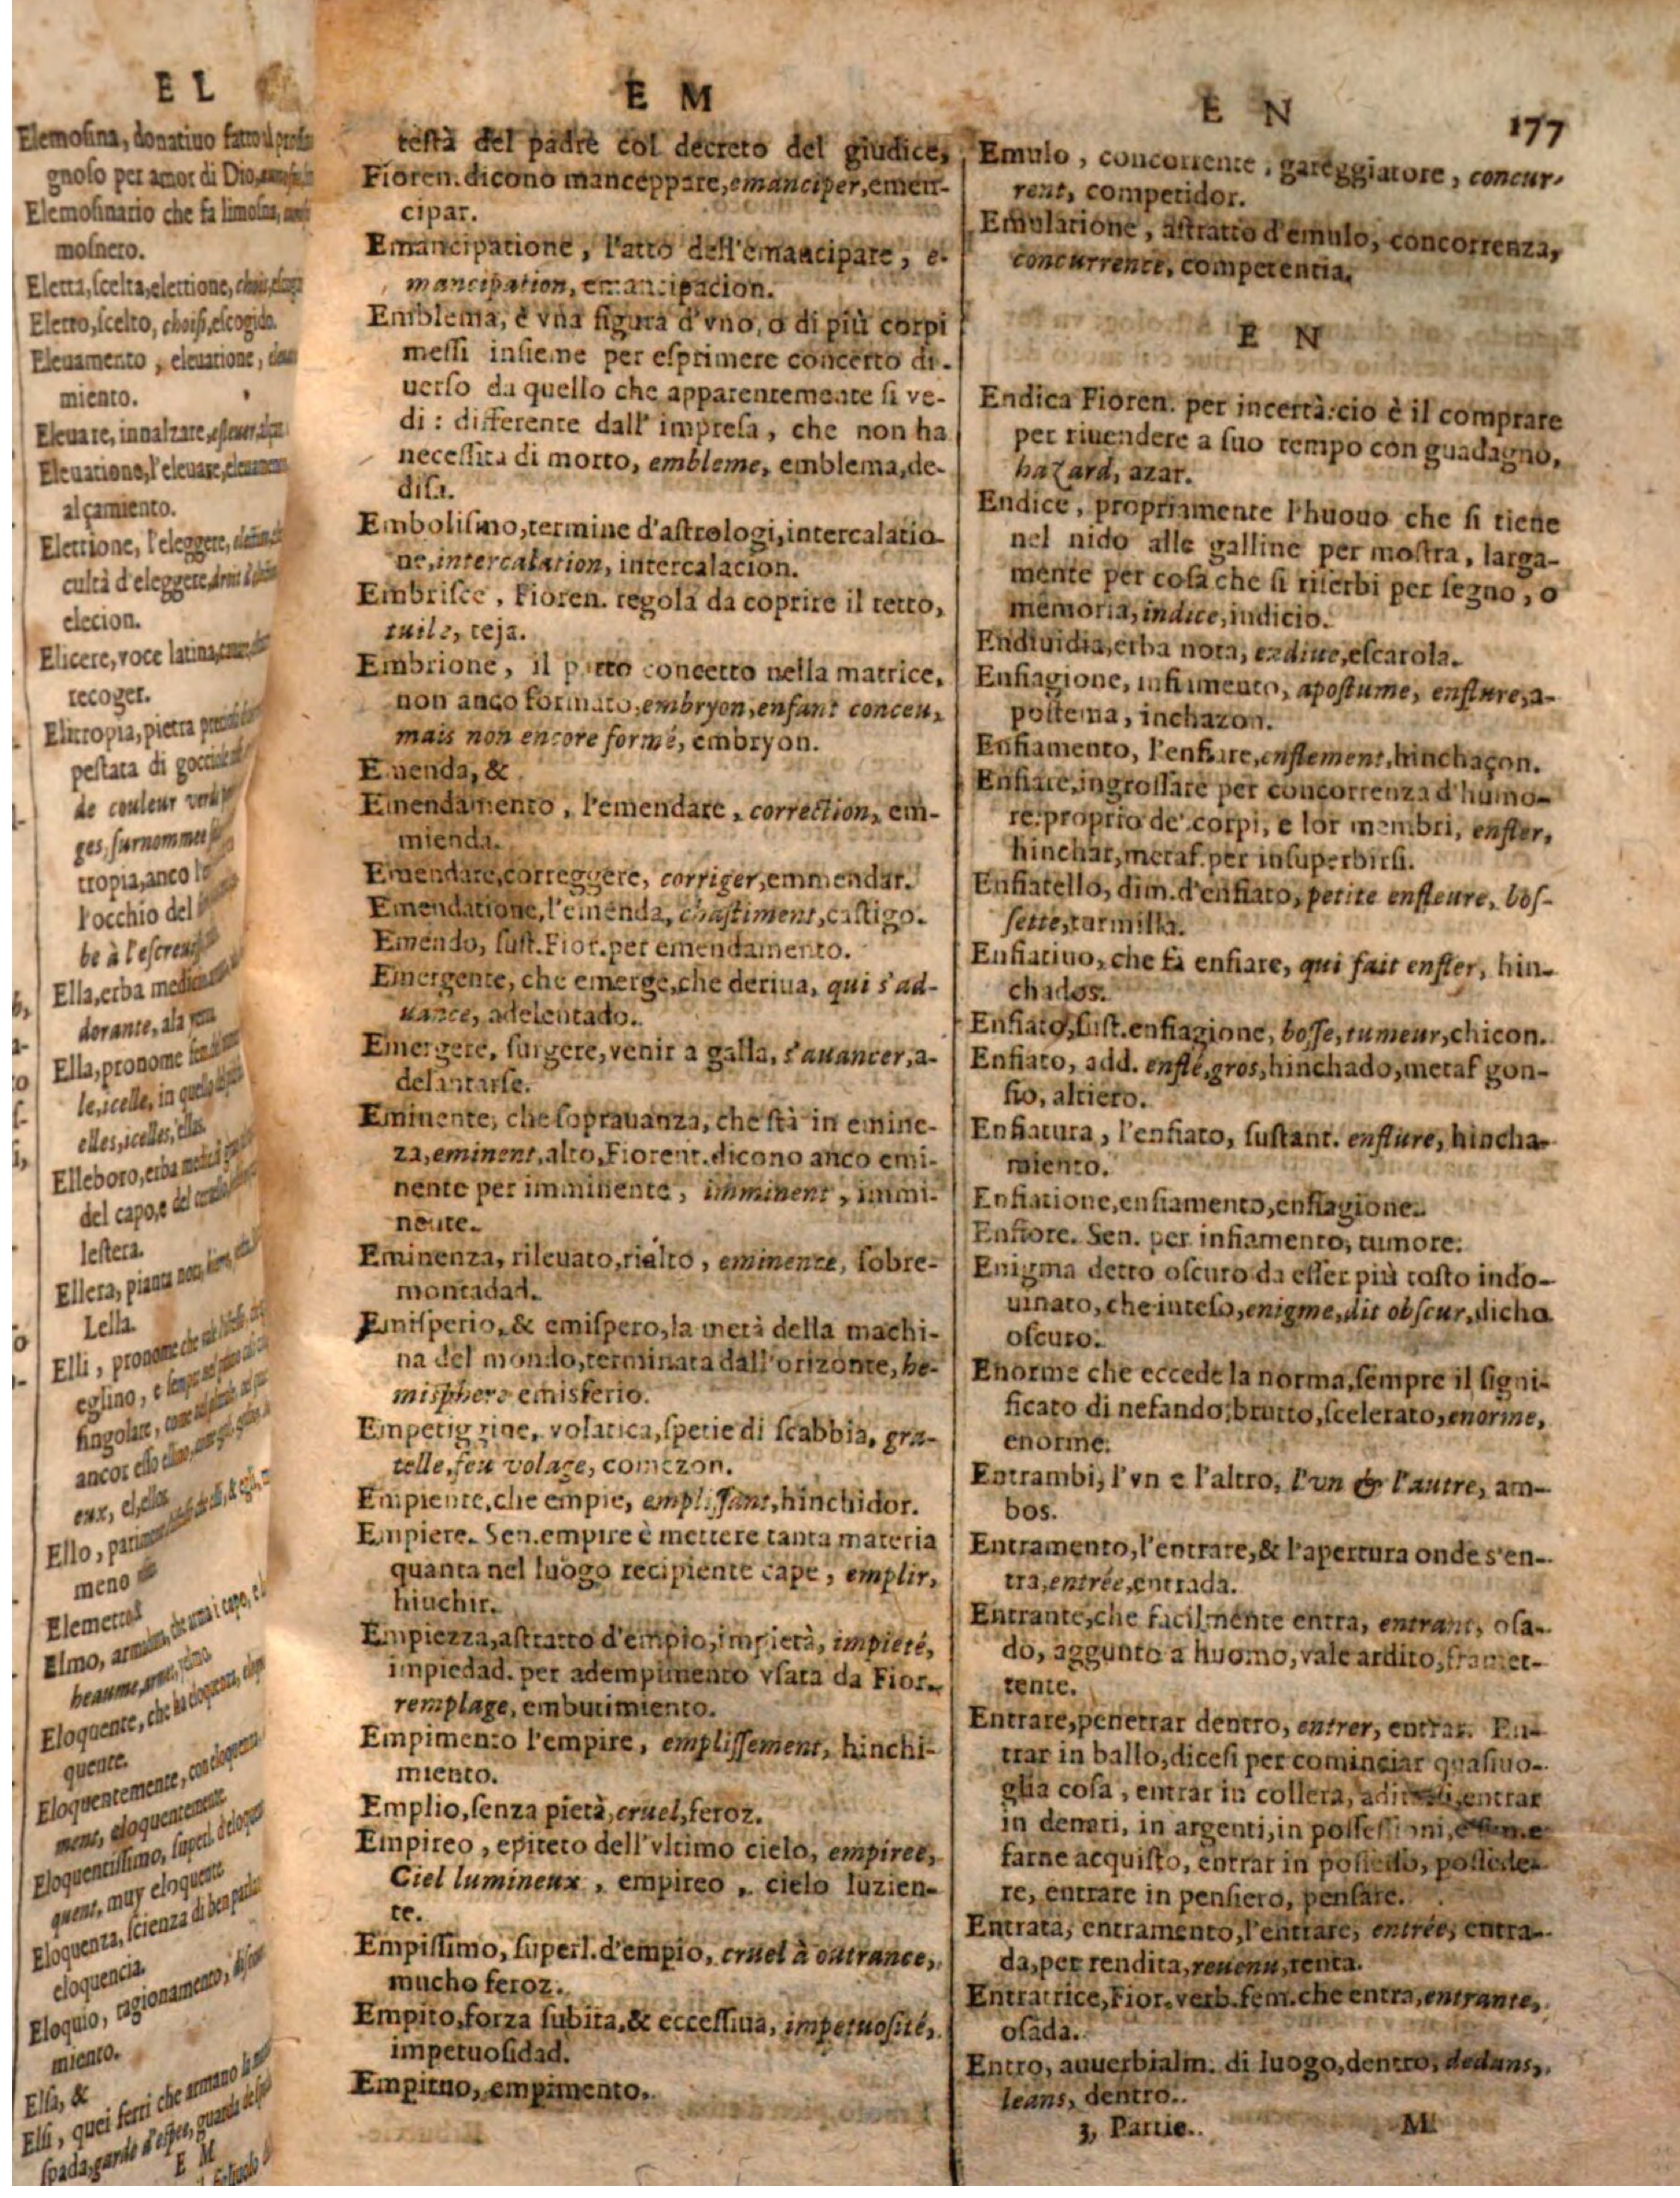 E L
Elemoſina, donatiuo fatto
gnoſo per amor di Dio,
Elemoſinario che fa limoſna,
moſnero.
Eletta, ſcelta, elettione,
Eletto, ſcelto, choiſi, eſcogido.
Eleuamento, eleuatione,
miento.
Eleuare, innalzare,
Eleuatione, l'eleuare,
alçamiento.
Elettione, l'eleggere,
cultà d'eleggere,
elecion.
Elicere, voce latina,
recoger.
Elitropia, pietra
peſtata di
de couleur
ges, ſurnommee
tropia, anco
l'occhio del
be à l'eſcreu
Ella, erba
dorante, ala
Ella, pronome
le, icelle, in
elles, icelles, ellas.
Elleboro, erba
del capo, e del
leſtera.
Ellera, pianta
Lella.
Elli, pronome che
eglino, e
ſingolare,
ancor
eux, el, ellos
Ello,
meno
Elmo,
heaume,
Eloquente, che ha eloquenza,
quente.
Eloquentemente, con eloquenza
ment, eloquentemente
Eloquentiſſimo, ſuperl. d'eloquen
quent, muy eloquente
Eloquenza, ſcienza di ben parlar
eloquencia.
Eloquio, ragionamento,
miento.
Elſa, &
Elſi, quei ferri che armano
ſpada, garde d'eſpee, guarda
E M
E M
teſtà del padre col decreto del giudice,
Fioren. dicono manceppare, emanciper, emen-
cipar.
Emancipatione, l'atto dell'emancipare, e-
mancipation, emancipacion.
Emblema, è vna figura d'vno, o di più corpi
meſſi inſieme per eſprimere concetto di-
uerſo da quello che apparentemente ſi ve-
di: differente dall'impreſa, che non ha
neceſſità di motto, embleme, emblema, de-
diſa.
Emboliſmo, termine d'aſtrologi, intercalatio-
ne, intercalation, intercalacion.
Embriſce, Fioren. regola da coprire il tetto,
tuile, teja.
Embrione, il parto concetto nella matrice,
non anco formato, embryon, enfant conceu,
mais non encore formé, embryon.
Emenda, &
Emendamento, l'emendare, correction, em-
mienda.
Emendare, correggere, corriger, emmendar.
Emendatione, l'emenda, chaſtiment, caſtigo.
Emendo, ſuſt. Fior. per emendamento.
Emergente, che emerge, che deriua, qui s'ad-
uance, adelentado.
Emergere, ſurgere, venir a galla, s'auancer, a-
delantarſe.
Eminente, che ſoprauanza, che ſtà in emine-
za, eminent, alto, Fiorent. dicono anco emi-
nente per imminente, imminent, immi-
nente.
Eminenza, rileuato, rialto, eminence, ſobre-
montadad.
Emiſperio, & emiſpero, la metà della machi-
na del mondo, terminata dall'orizonte, he-
miſphere emisferio.
Empetiggine, volatica, ſpetie di ſcabbia, gra-
telle, feu volage, comezon.
Empiente, che empie, empliſſant, hinchidor.
Empiere. Sen. empire è mettere tanta materia
quanta nel luogo recipiente cape, emplir,
hiuchir.
Empiezza, aſtratto d'empio, impietà, impieté,
impiedad. per adempimento vſata da Fior.
remplage, embutimiento.
Empimento l'empire, empliſſement, hinchi-
miento.
Emplio, ſenza pietà, cruel, feroz.
Empireo, epiteto dell'vltimo cielo, empiree,
Ciel lumineux, empireo, cielo luzien-
te.
Empiſſimo, ſuperl. d'empio, cruel à outrance,
mucho feroz.
Empito, forza ſubita, & ecceſſiua, impetuoſité,
impetuoſidad.
Empitno, empimento.
E N
177
Emulo, concorrente, gareggiatore, concur-
rent, competidor.
Emulatione, aſtratto d'emulo, concorrenza,
concurrence, competentia.
E N
Endica Fioren. per incetta: cio è il comprare
per riuendere a ſuo tempo con guadagno,
hazard, azar.
Endice, propriamente l'huouo che ſi tiene
nel nido alle galline per moſtra, larga-
mente per coſa che ſi riſerbi per ſegno, o
memoria, indice, indicio.
Endiuidia, erba nota, endiue, eſcarola.
Enfiagione, infiamento, apoſtume, enflure, a-
poſtema, inchazon.
Enfiamento, l'enfiare, enflement, hinchaçon.
Enfiare, ingroſſare per concorrenza d'humo-
re: proprio de' corpi, e lor membri, enfler,
hinchar, metaf. per inſuperbirſi.
Enfiatello, dim. d'enfiato, petite enfleure, boſ-
ſette, turmilla.
Enfiatiuo, che fa enfiare, qui fait enfler, hin-
chados.
Enfiato, ſuſt. enfiagione, boſſe, tumeur, chicon.
Enfiato, add. enflé, gros, hinchado, metaf gon-
fio, altiero.
Enfiatura, l'enfiato, ſuſtant. enflure, hincha-
miento.
Enfiatione, enfiamento, enfiagione.
Enfiore. Sen. per infiamento, tumore.
Enigma detto oſcuro da eſſer più toſto indo-
uinato, che inteſo, enigme, dit obſcur, dicho
oſcuro.
Enorme che eccede la norma, ſempre il ſigni-
ficato di nefando, brutto, ſcelerato, enorme,
enorme.
Entrambi, l'vn e l'altro, l'vn & l'autre, am-
bos.
Entramento, l'entrare, & l'apertura onde s'en-
tra, entrée, entrada.
Entrante, che facilmente entra, entrant, oſa-
do, aggunto a huomo, vale ardito, framet-
tente.
Entrare, penetrar dentro, entrer, entrar. En-
trar in ballo, diceſi per cominciar qualſiuo-
glia coſa, entrar in collera, adirarſi, entrar
in denari, in argenti, in poſſeſſioni,
farne acquiſto, entrar in poſſeſſo, poſſede-
re, entrare in penſiero, penſare.
Entrata, entramento, l'entrare, entrée, entra-
da, per rendita, reuenu, renta.
Entratrice, Fior. verb. fem. che entra, entrante,
oſada.
Entro, auuerbialm. di luogo, dentro, dedans,
leans, dentro.
3, Partie. M